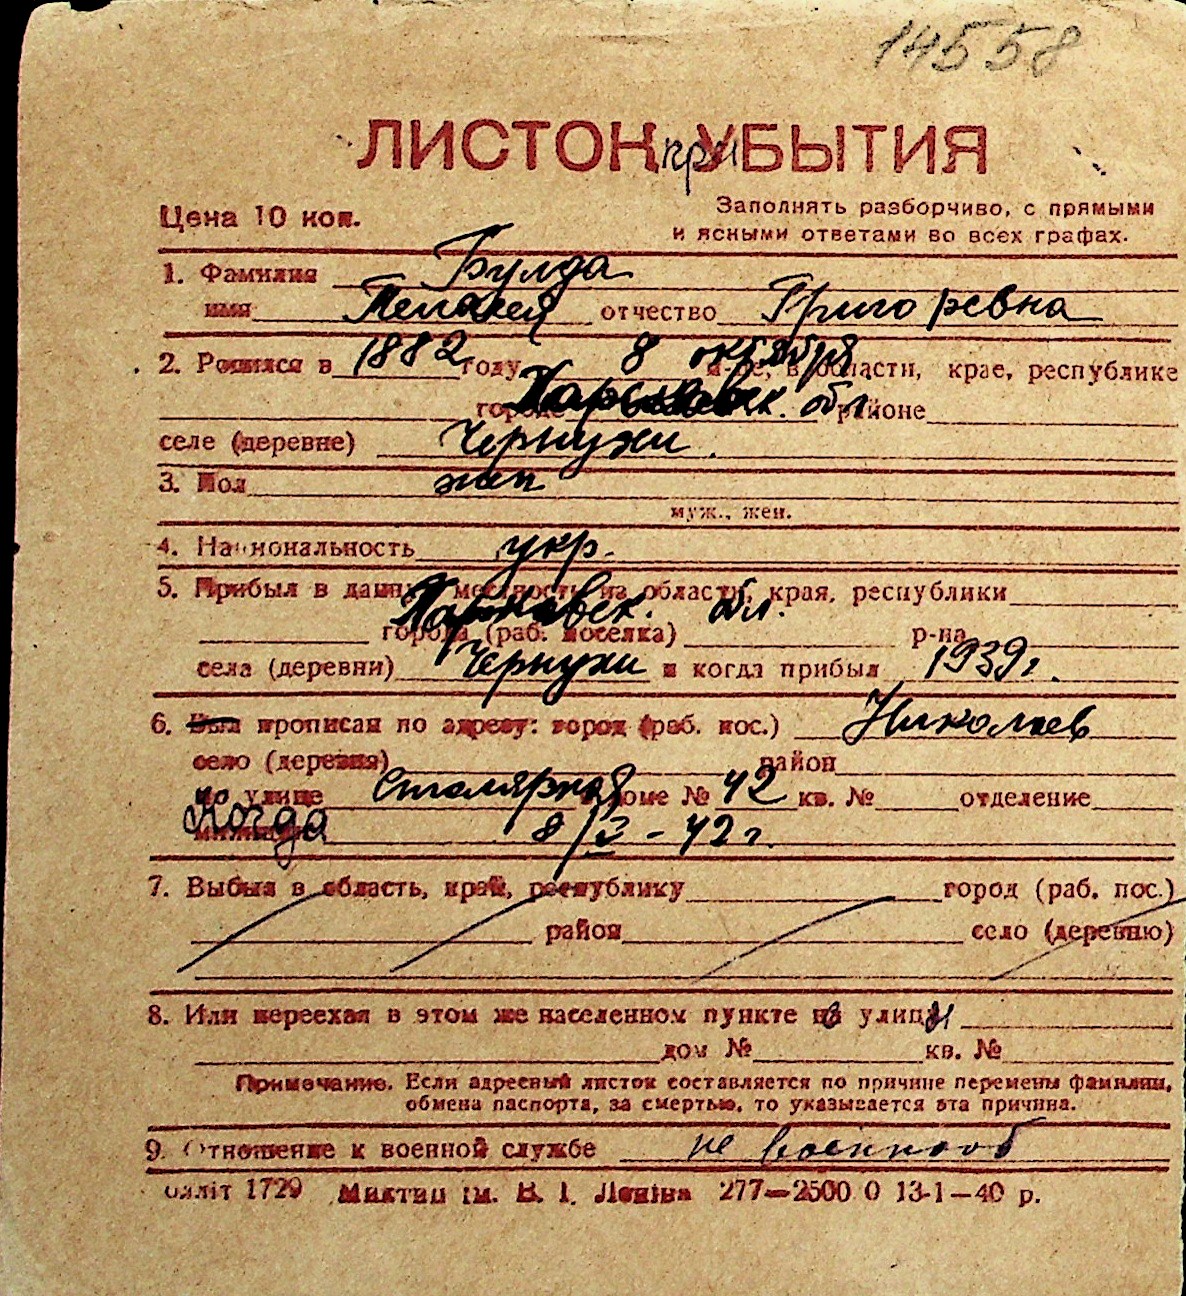 14558
ЛИСТОК при УБЫТИЯ
Цена 10 коп.
Заполнять разборчиво, с прямыми
и ясными ответами во всех графах.
1. Фамилия Булда
имя Пелагея отчество Григоревна
2. Родился в 1882 году 8 октября м-це, в области, крае, республике
городе Харьковск. обл. районе
селе (деревне) Чернухи.
3. Пол жен
муж., жен.
4. Национальность укр.
5. Прибыл в данную местность из области, края, республики
Харьковск. обл.
города (раб. поселка) р-на
села (деревни) Чернухи и когда прибыл 1939 г.
6. Был прописан по адресу: город (раб. пос.) Николаев
село (деревня) район
по улице Столярная в доме № 42 кв. № отделение
Когда милиции 8/X - 42 г.
7. Выбыл в область, край, республику город (раб. пос.)
район село (деревню)
8. Или переехал в этом же населенном пункте из улицы
дом № кв. №
Примечание. Если адресный листок составляется по причине перемены фамилии,
обмена паспорта, за смертью, то указывается эта причина.
9. Отношение к военной службе не военнооб
1729 Миктип ім. В. І. Леніна 277—2500 0 13-1—40 р.